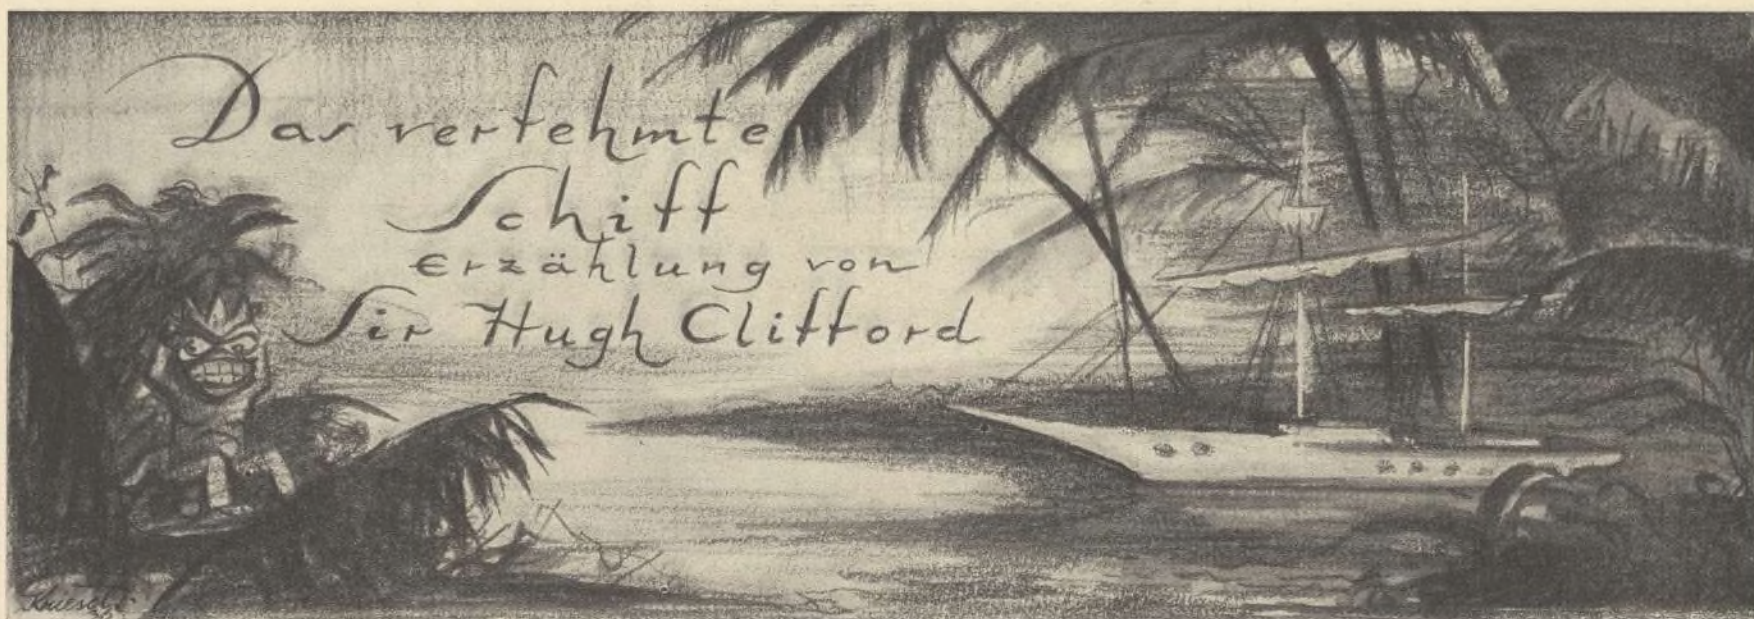 Das verfehmte
Schiff
Erzählung von
Sir Hugh Clifford